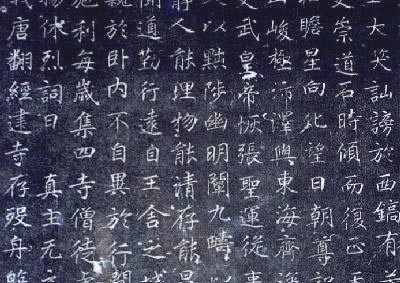 大笑訕謗於西鎬有
崇道石時傾而復正
瞻星向北望日朝尊
峻極沛澤與東海齊
文武皇帝恢張聖運從
以黜陟幽明闡九疇以
靜人能理物能清存能
聞道勤行遠自王舍之城
親於卧内不自異於行間
施利每歲集四寺僧徒
休烈詞曰 真主无
唐翻經建寺存歿舟